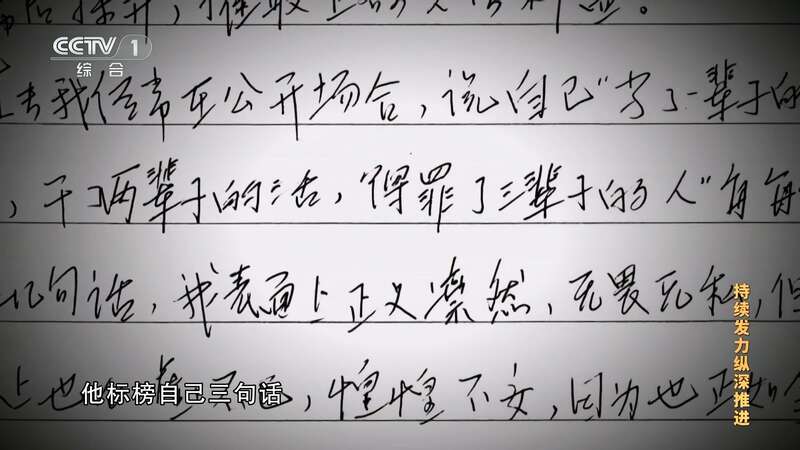 CCTV 1
综合
去我经常在公开场合，说自己“当了一辈子的
，干了两辈子的活，得罪了三辈子的人”每每
几句话，我表面上正义凛然，无畏无私，但
上也 惶惶不安，因为也正如
他标榜自己三句话
持续发力纵深推进